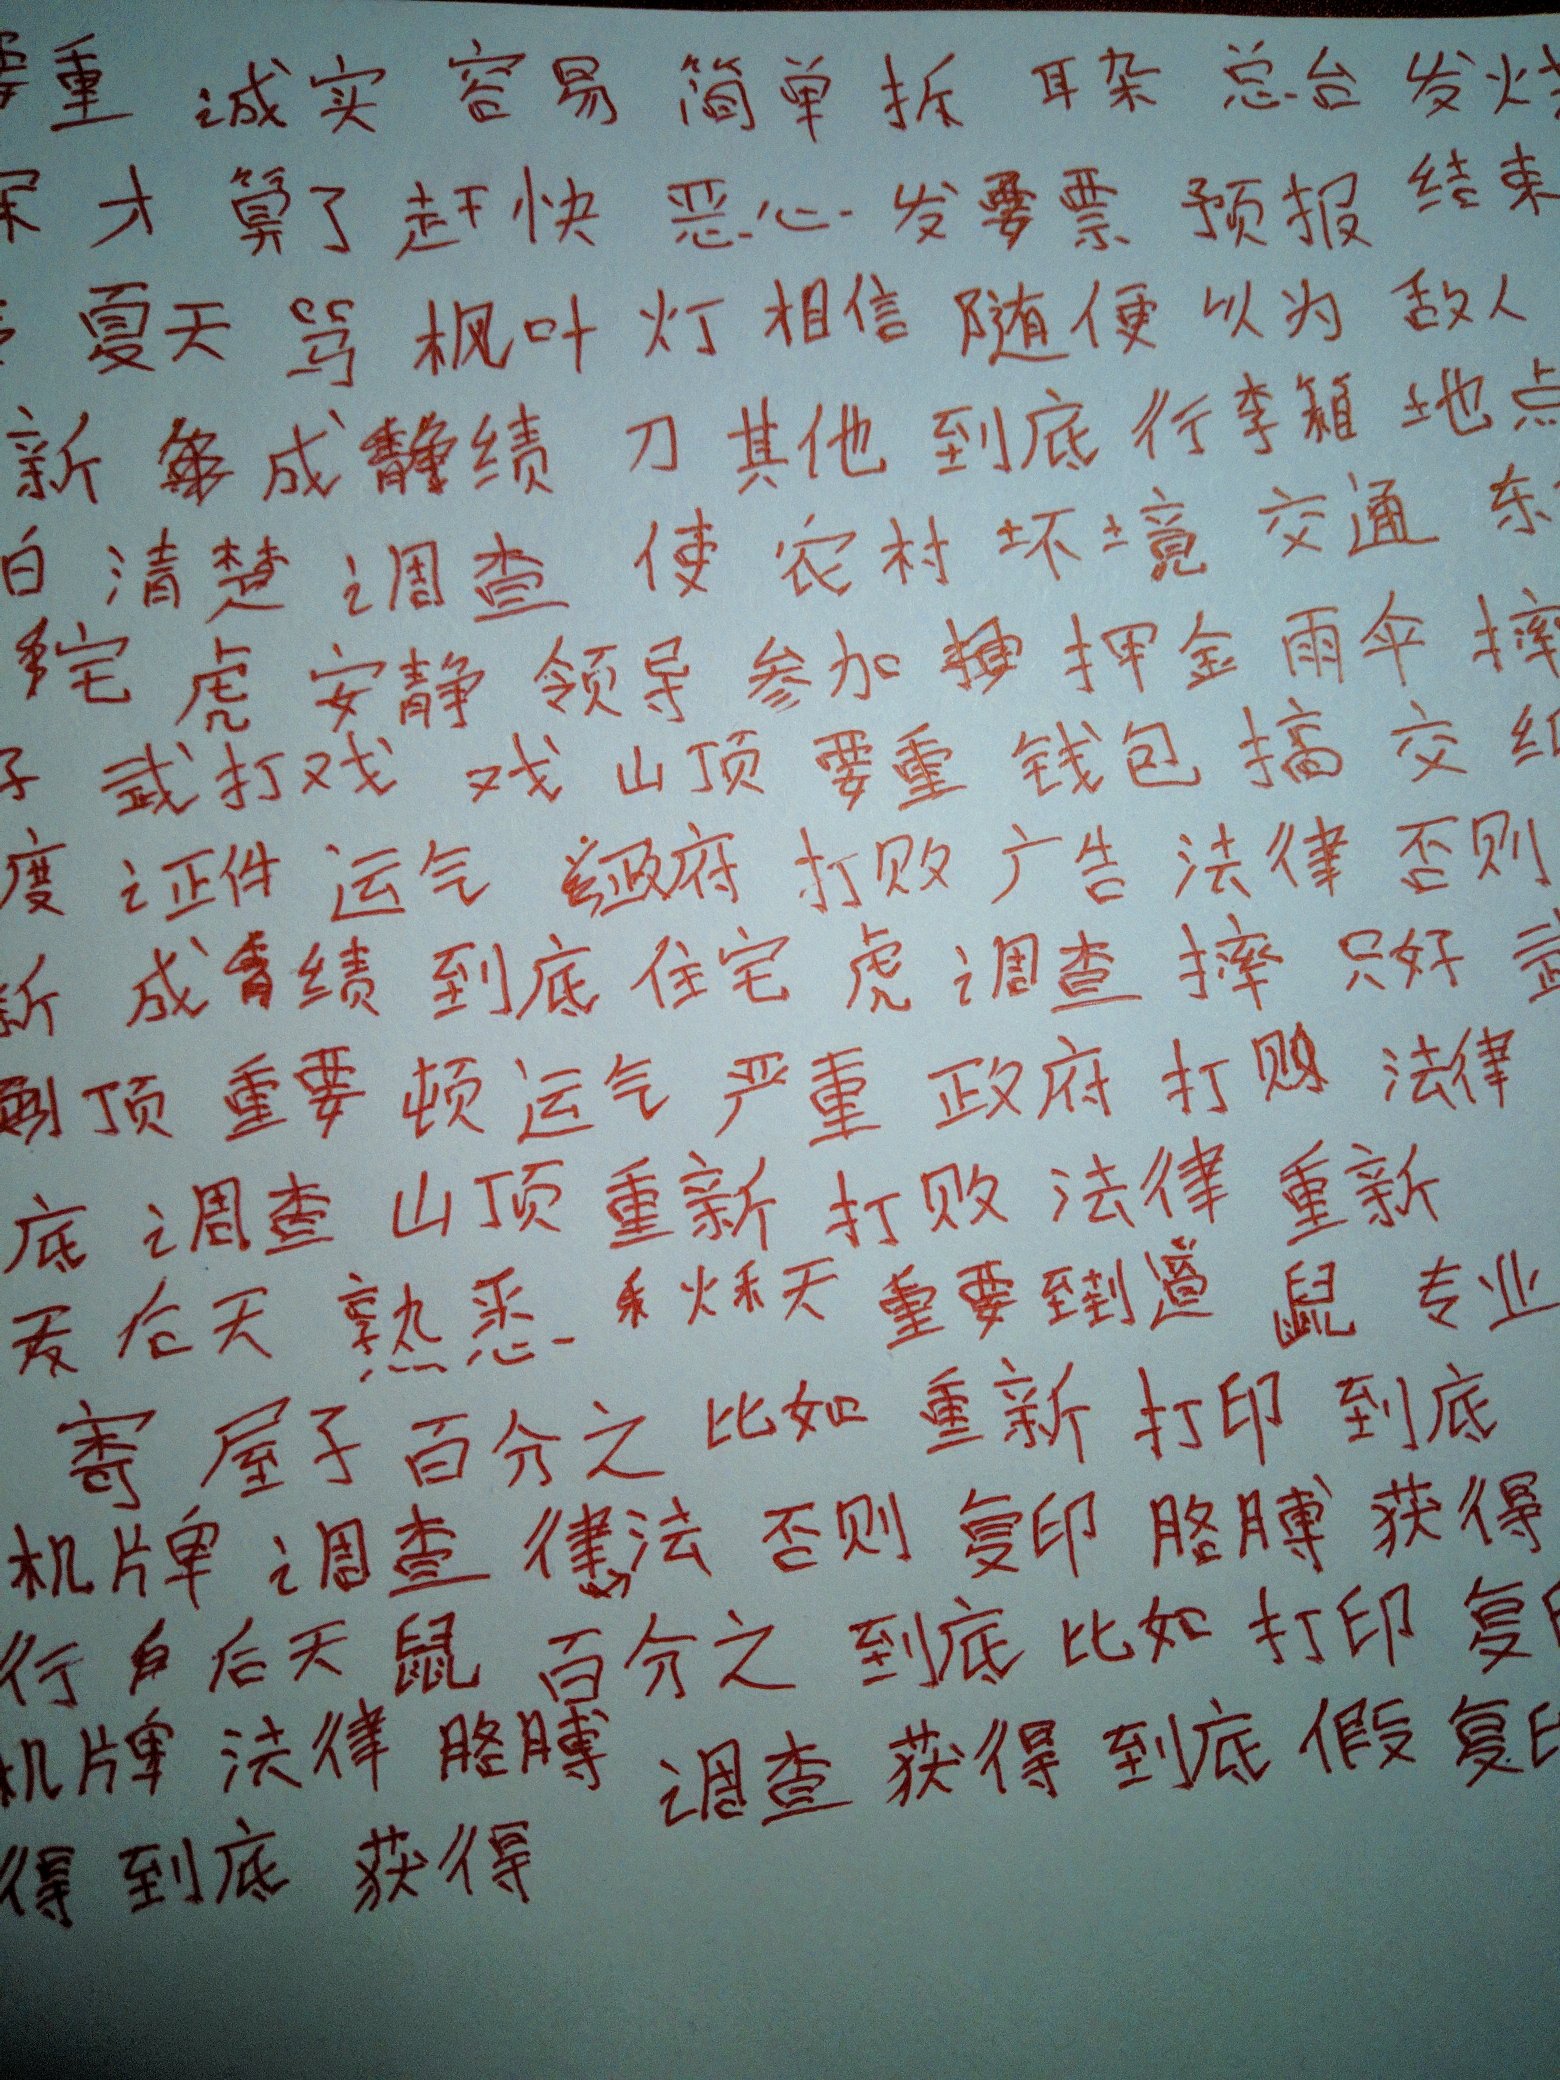 要重 诚实 容易 简单 拆 耳朵 总台 发烧
尿 才 算了 赶快 恶心 发要票 预报 结束
夏天 骂 枫叶 灯 相信 随便 以为 敌人
新 成绩 刀 其他 到底 行李箱 地点
白 清楚 调查 使 农村 坏 境 交通 东
宅 虎 安静 领导 参加 押金 雨伞 摔
子 武打戏 戏 山顶 要重 钱包 搞 交 红
度 证件 运气 政府 打败 广告 法律 否则
新 成绩 到底 住宅 虎 调查 摔 只好 武
顶 重要 顿 运气 严重 政府 打败 法律
底 调查 山顶 重新 打败 法律 重新
后天 熟悉 秋天 重要 到 鼠 专业
寄 屋子 百分之 比如 重新 打印 到底
机牌 调查 律法 否则 复印 胳膊 获得
行 后天 鼠 百分之 到底 比如 打印 复印
机牌 法律 胳膊 调查 获得 到底 假 复印
得 到底 获得